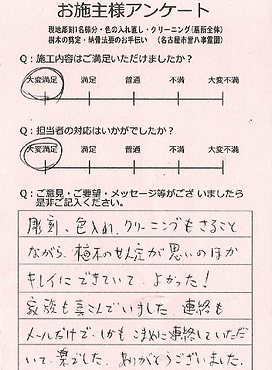 お施主様アンケート
現地彫刻1名様分・色の入れ直し・クリーニング(墓所全体)
樹木の剪定・納骨法要のお手伝い (名古屋市営八事霊園)
Q:施工内容はご満足いただけましたか?
大変満足 満足 普通 不満 大変不満
Q:担当者の対応はいかがでしたか?
大変満足 満足 普通 不満 大変不満
Q:ご意見・ご要望・メッセージ等がございましたら
是非ご記入ください。
彫刻、色入れ、クリーニングもさること
ながら、植木のせん定が思いのほか
キレイにできていて、よかった!
家族も喜こんでいました。連絡も
メールだけで、しかもこまめに連絡していただ
いて、楽でした。ありがとうございました。